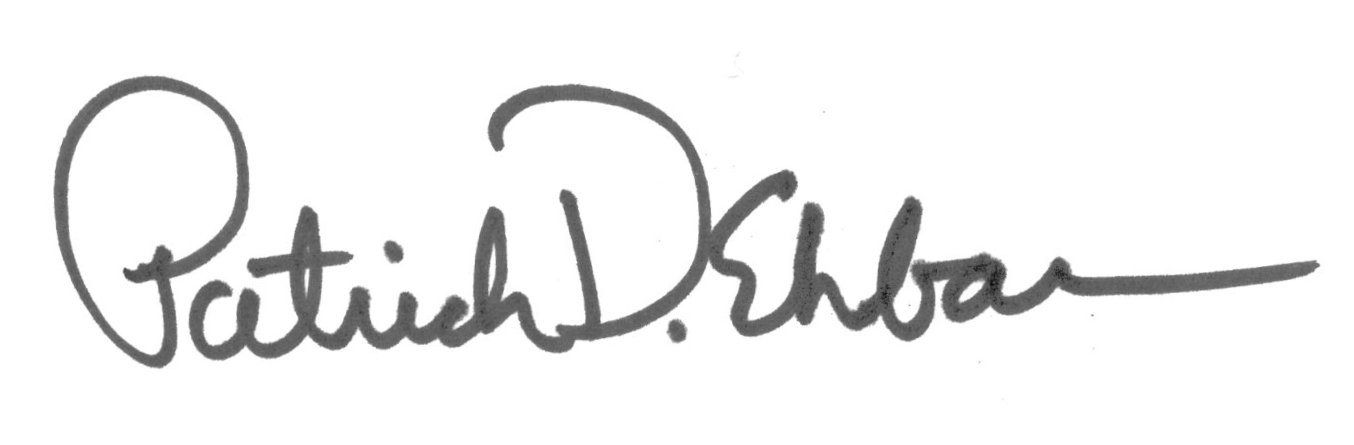 Patrick D. Ehbar